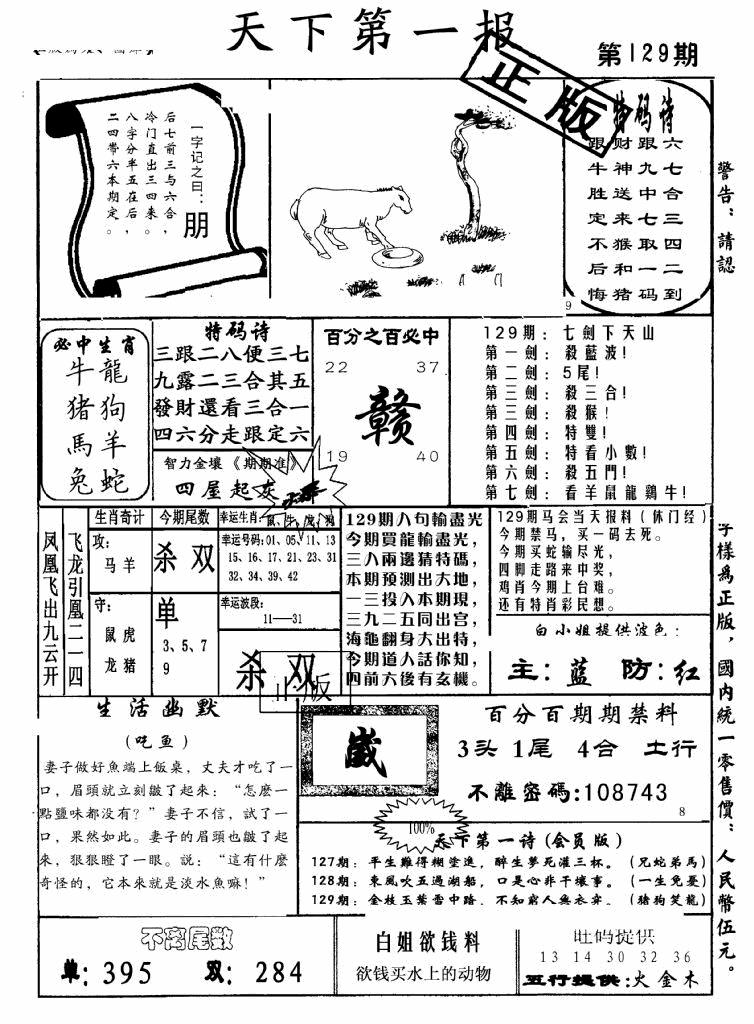 天下第一报
第129期
正版
一字记之曰：
朋
后七前三与六合，
冷门直出三四来。
八字分半五在后，
二四带六本期定。
特码诗
跟财跟六
牛神九七
胜送中合
定来七三
不猴取四
后和一二
悔猪码到
9
警告：請認
字樣為正版，國内統一零售價：人民幣伍元。
必中生肖
牛龍
猪狗
馬羊
兔蛇
特码诗
三跟二八便三七
九露二三合其五
發財還看三合一
四六分走跟定六
智力金壤《期期准》
四屋起灰
百分之百必中
22 37
赣
19 40
129期：七劍下天山
第一劍：殺藍波！
第二劍：5尾！
第三劍：殺三合！
第三劍：殺猴！
第四劍：特雙！
第五劍：特看小數！
第六劍：殺五門！
第七劍：看羊鼠龍鷄牛！
凤凰飞出九云开
飞龙引凰二一四
生肖奇计
攻：
马羊
守：
鼠虎
龙猪
今期尾数
杀双
单
3、5、7
9
幸运生肖：鼠、牛、虎、狗
幸运号码：01、05、11、13
15、16、17、21、23、31
32、34、39、42
幸运波段：
11—31
杀双
正版
129期八句輸盡光
今期買龍輸盡光，
三八兩邊猜特碼，
本期預測出大地，
一三投入本期現，
三九二五同出宫，
海龜翻身大出特，
今期道人話你知，
四前六後有玄機。
129期马会当天报料（休门经）
今期禁马，买一码去死。
今期买蛇输尽光，
四脚走路来中奖，
鸡肖今期上台难。
还有特肖彩民想。
白小姐提供波色：
主：蓝 防：红
生活幽默
（吃鱼）
妻子做好魚端上飯桌，丈夫才吃了一
口，眉頭就立刻皺了起來：“怎麽一
點鹽味都没有？”妻子不信，試了一
口，果然如此。妻子的眉頭也皺了起
來，狠狠瞪了一眼。説：“這有什麽
奇怪的，它本來就是淡水魚嘛！”
百分百期期禁料
3头 1尾 4合 土行
不離密碼：108743
8
100%
天下第一诗（会员版）
127期：平生難得糊塗逸，醉生夢死灌三杯。（兄蛇弟馬）
128期：東風吹五過湖船，口是心非干壞事。（一生免憂）
129期：金枝玉葉雷中路，不知窮人無衣穿。（猪狗笑龍）
不离尾数
单：395 双：284
白姐欲钱料
欲钱买水上的动物
旺码提供
13 14 30 32 36
五行提供：火金木